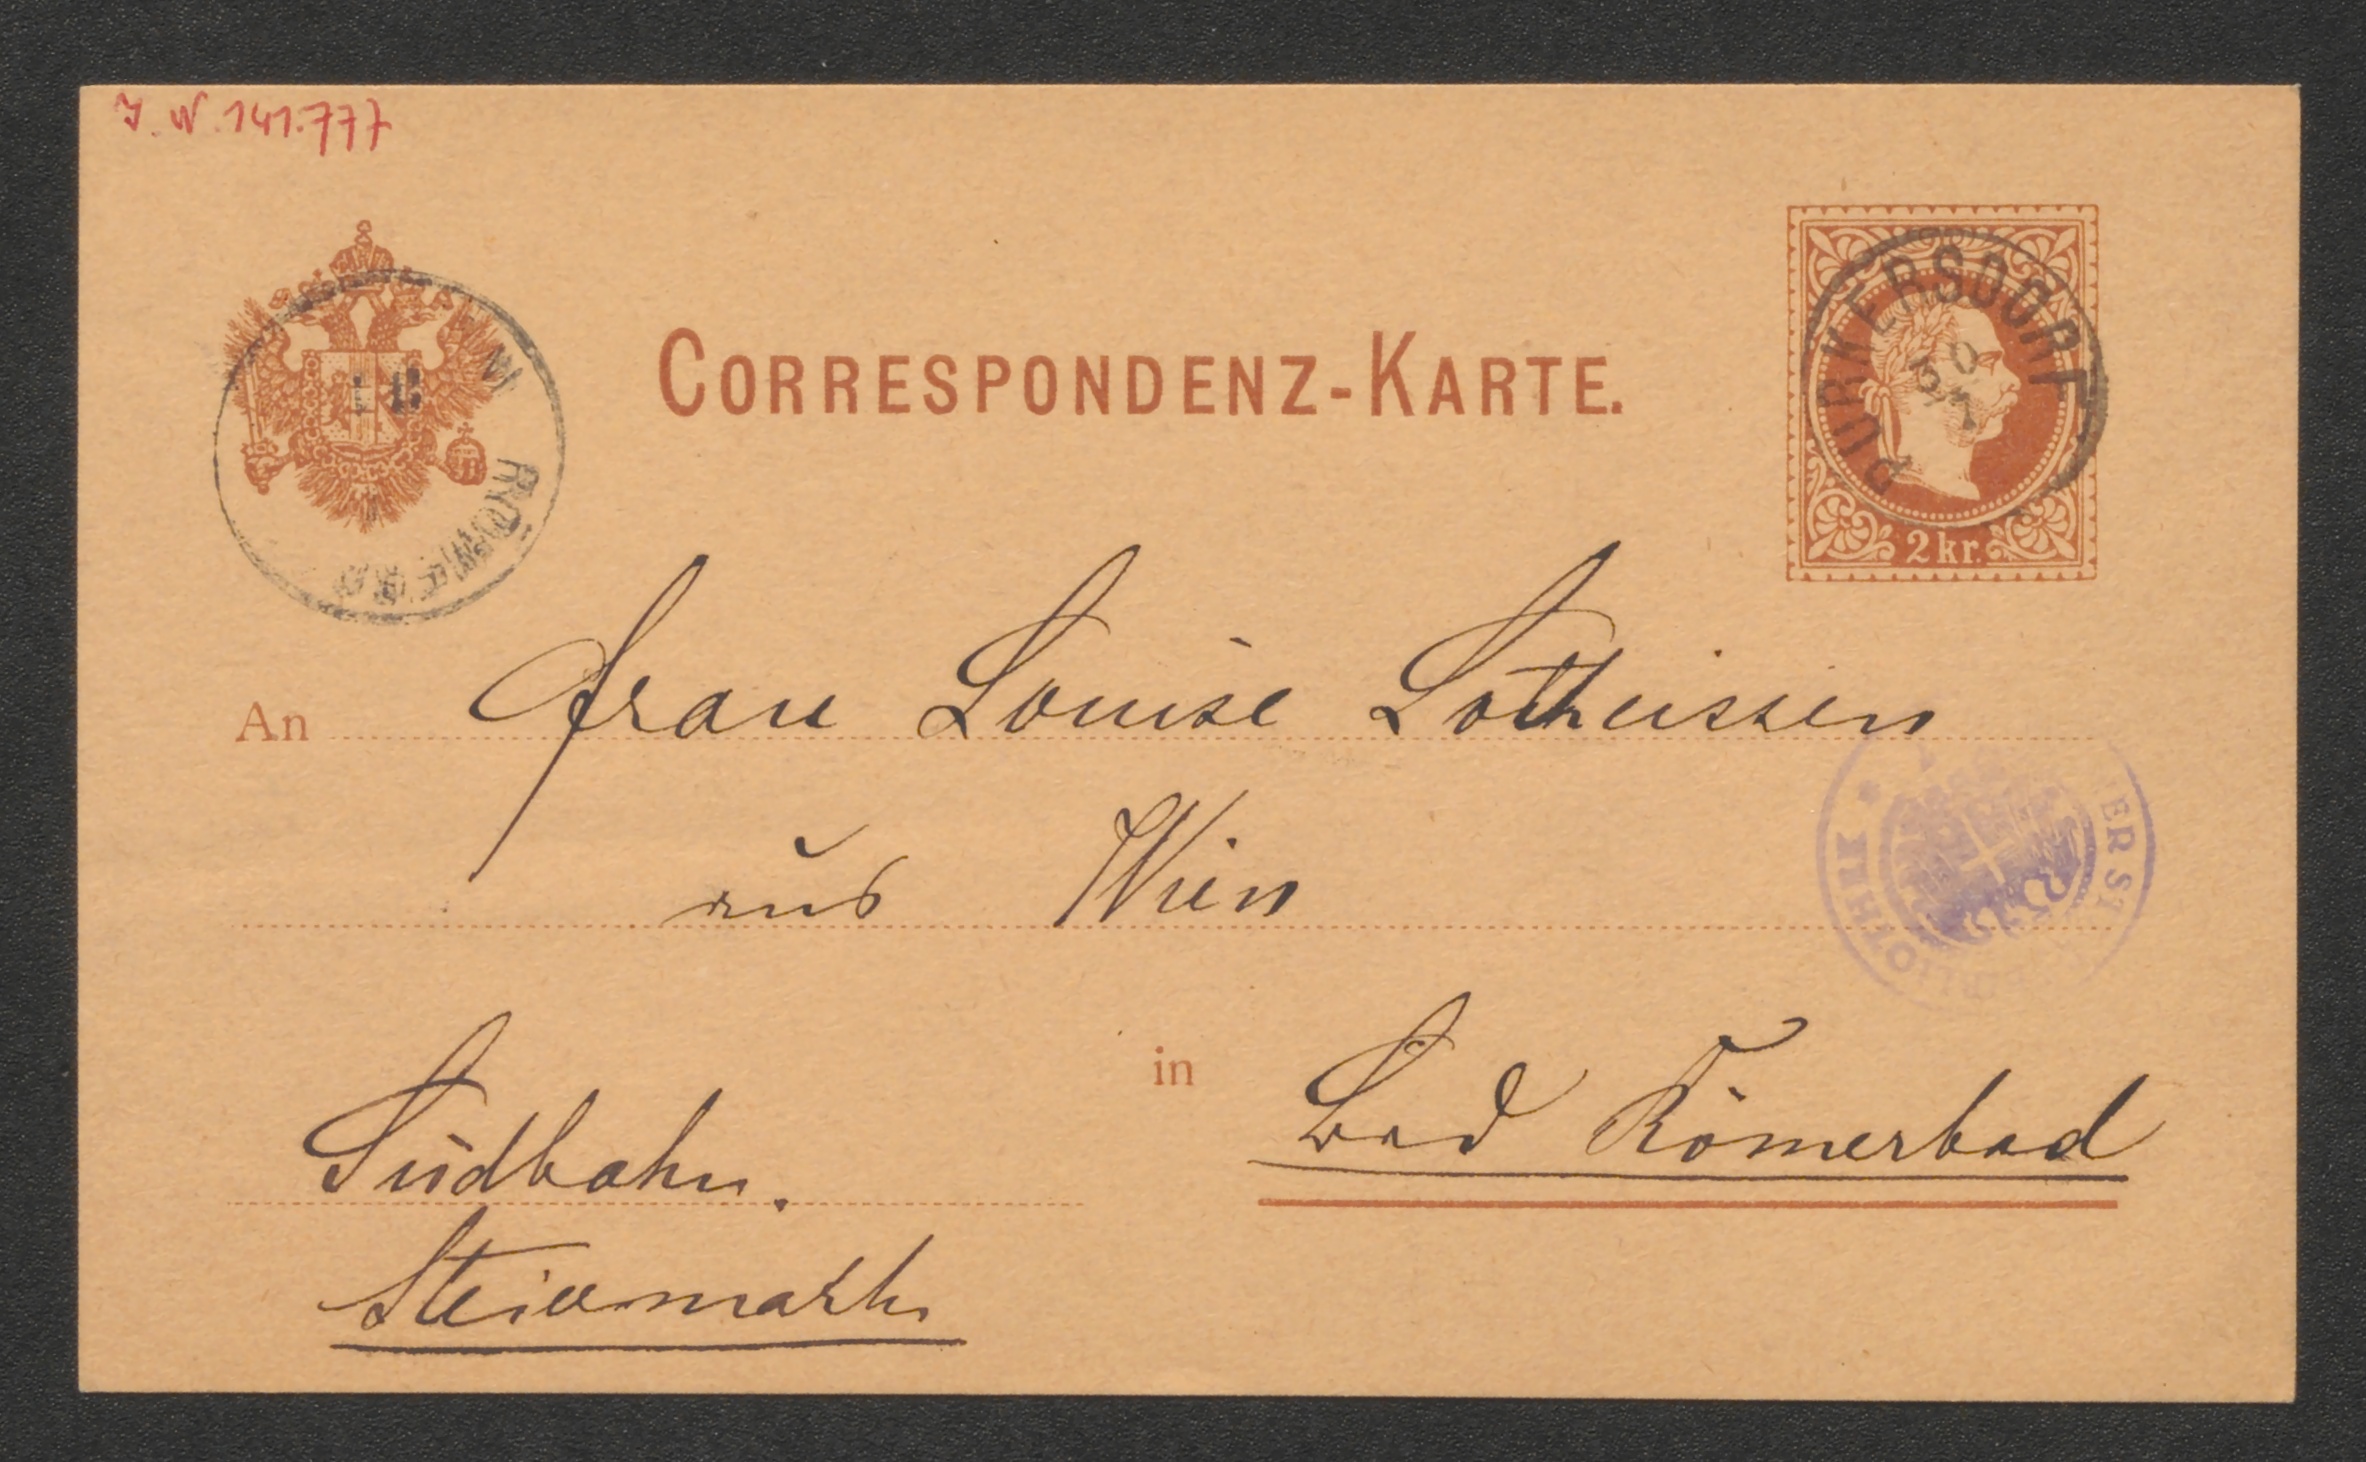 I. N. 141.777
CORRESPONDENZ-KARTE.
PURKERSDORF
2 kr.
RÖMERBAD
An Frau Louise Lotheissen
aus Wien
in Bad Römerbad
Südbahn.
Steiermark